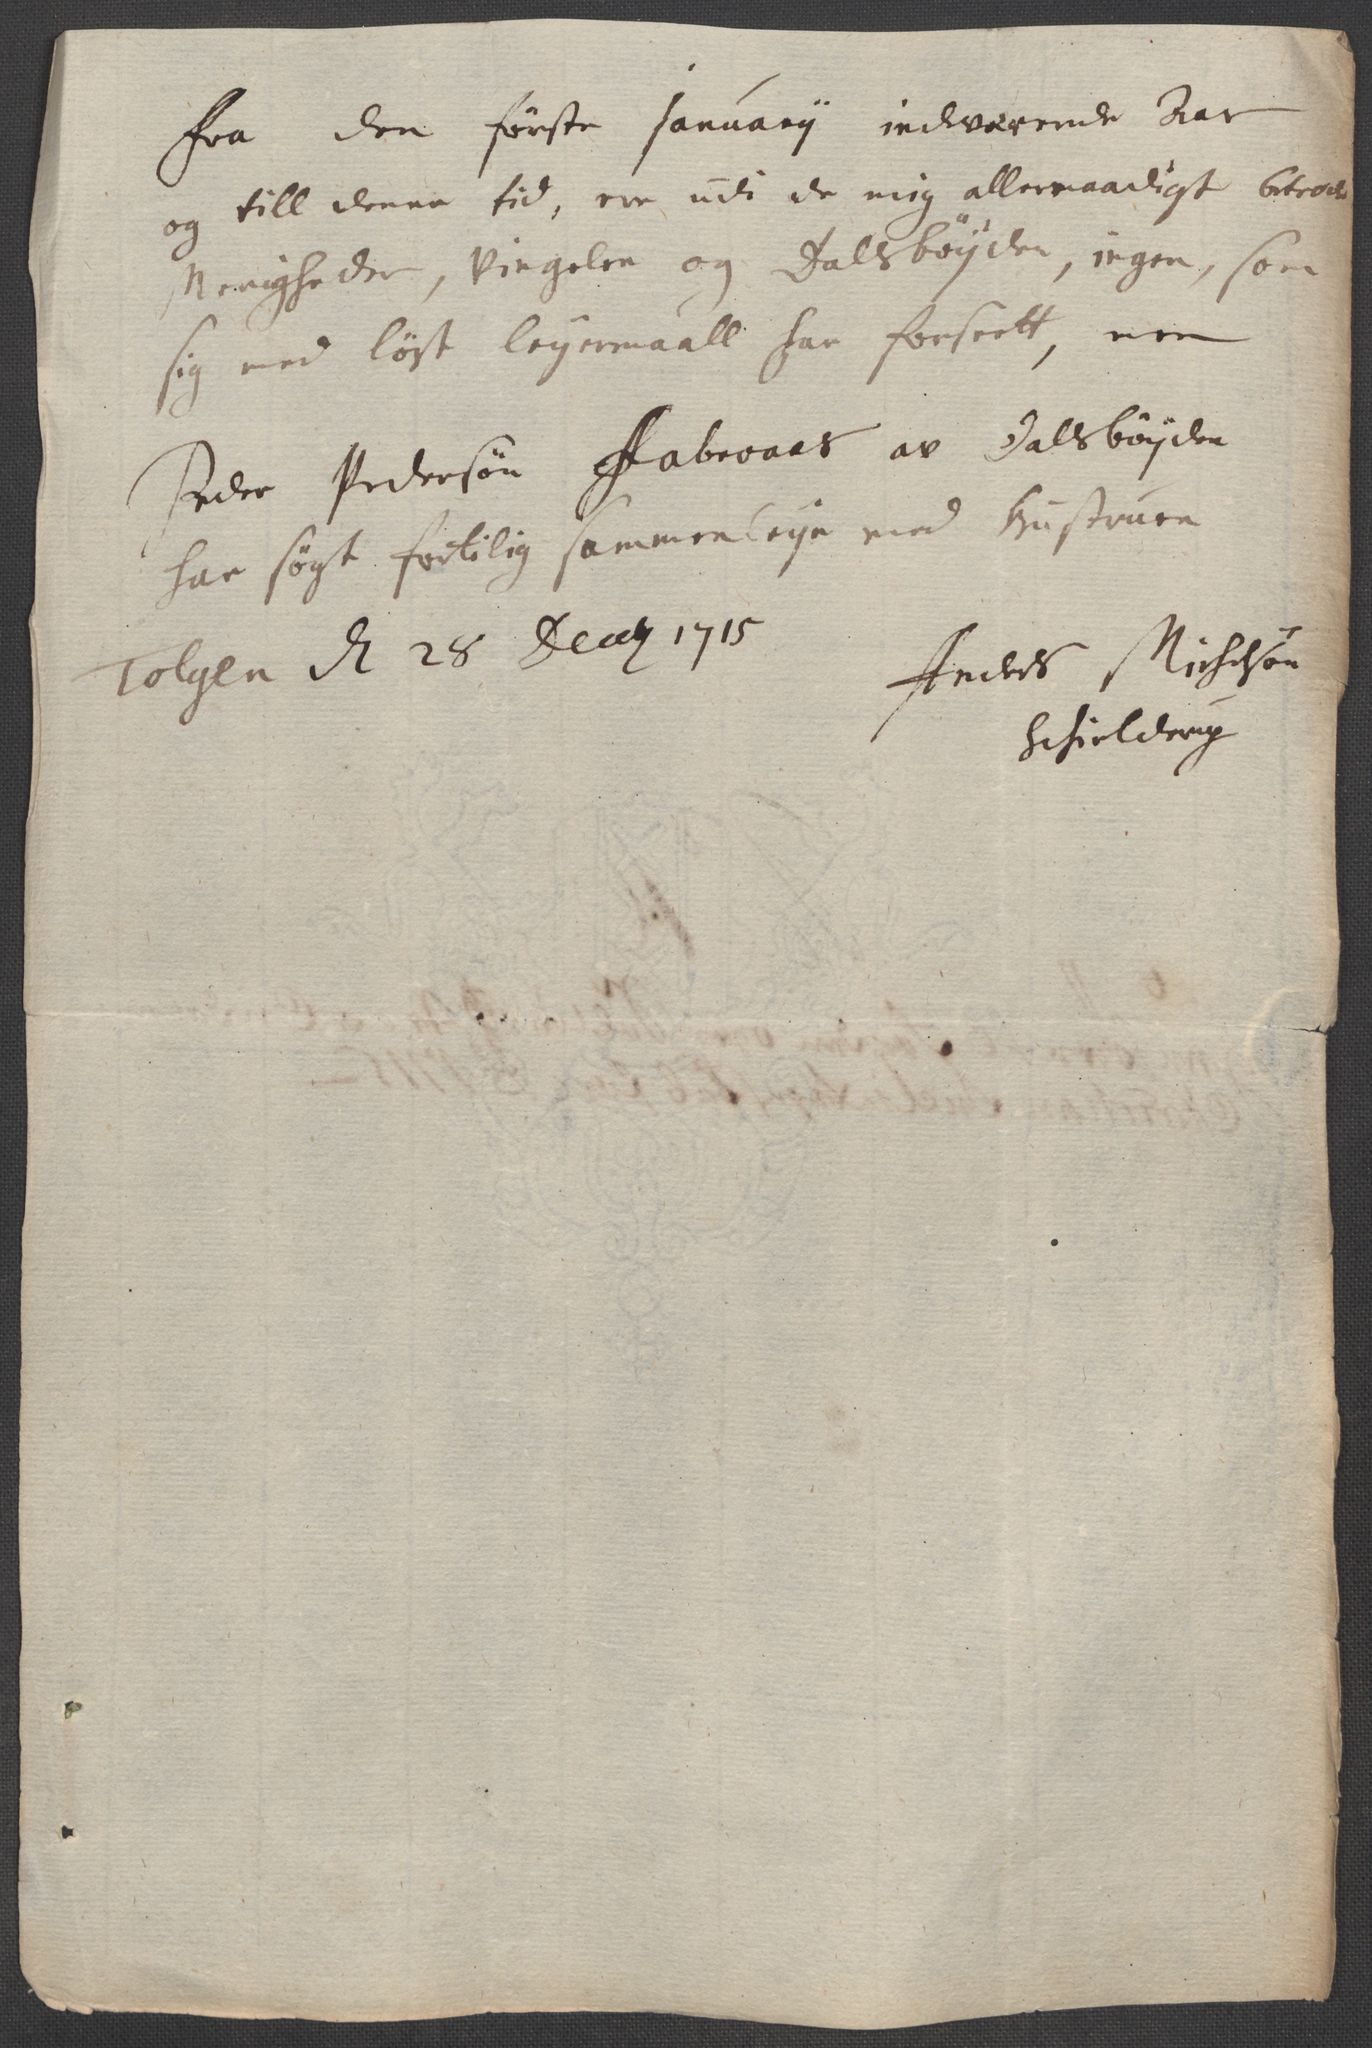 Fra den første January indwærende Aar
og till denne tid, ere udi de mig allernaadigst betroede
Menigheder, Vingelen og Dalsbøyden, ingen, som
sig med løst leyermaall har forseett, men
Peder Pedersøn Aabraas av Dalsbøyden
har søgt fortilig sammenleye med Hustruen
Tolgen d 28 Decbr 1715
Anders Michelsøn
Schielderup